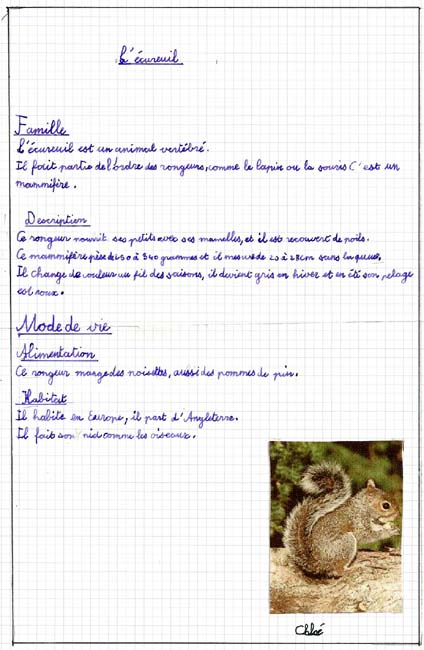 L'écureuil
Famille
L'écureuil est un animal vertébré.
Il fait partie de l'ordre des rongeurs, comme le lapin ou la souris C'est un
mammifère.
Description
Ce rongeur nourrit ses petits avec ses mamelles, et il est recouvert de poils.
Ce mammifère pèse de 540 grammes et il mesure de 20 à 28cm sans la queue.
Il change de couleur au fil des saisons, il devient gris en hiver et en été son pelage
est roux.
Mode de vie
Alimentation
Ce rongeur mange des noisettes, aussi des pommes de pin.
Habitat
Il habite en Europe, il part d'Angleterre.
Il fait son nid comme les oiseaux.
Chloé